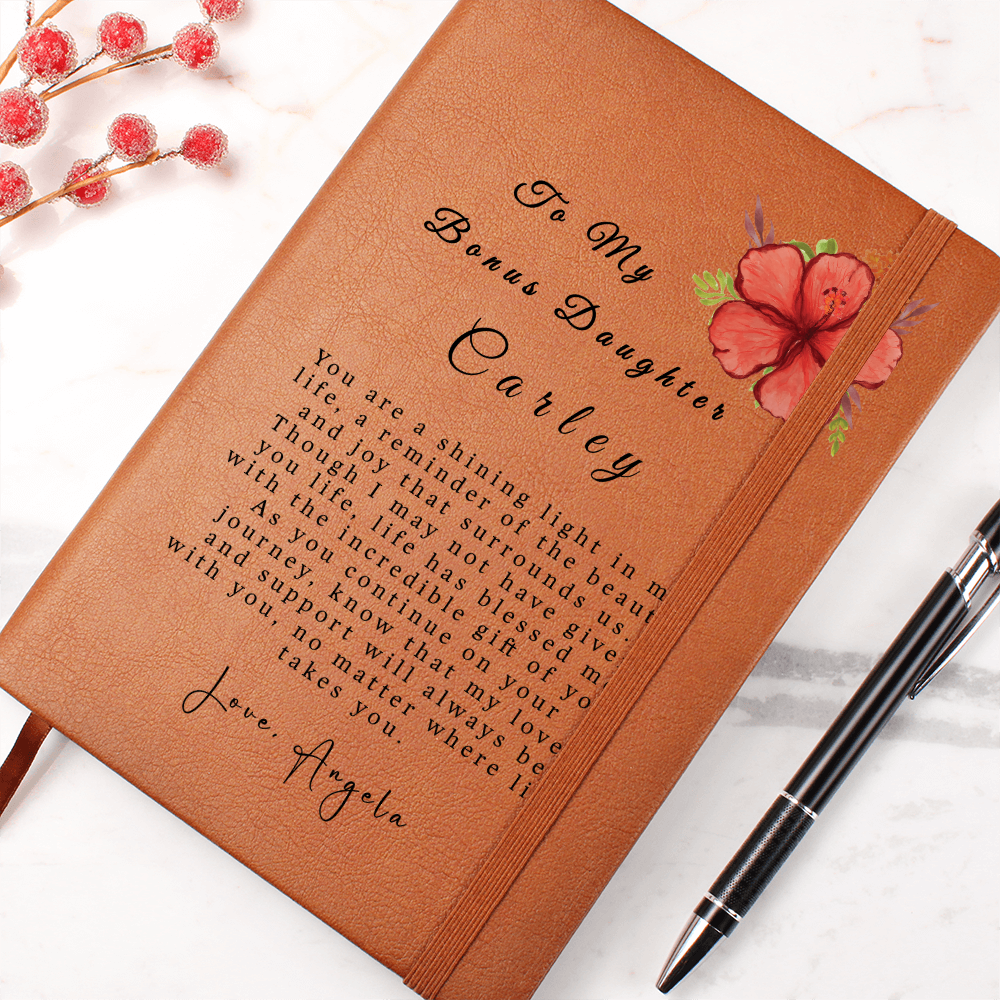 To My
Bonus Daughter
Carley
You are a shining light in m
life, a reminder of the beaut
and joy that surrounds us.
Though I may not have give
you life, life has blessed m
with the incredible gift of yo
As you continue on your
journey, know that my love
and support will always be
with you, no matter where li
takes you.
Love, Angela